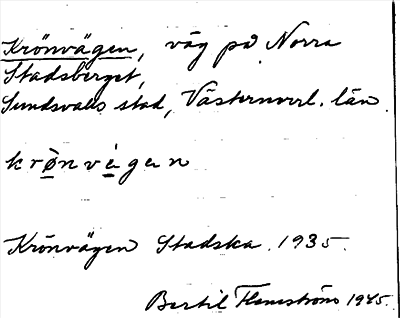 Krönvägen, väg på Norra
Stadsberget,
Sundsvalls stad, Västernorrl. län.
krø̀nvἐgan
Krönvägen Stadska. 1935.
Bertil Flemström 1945.